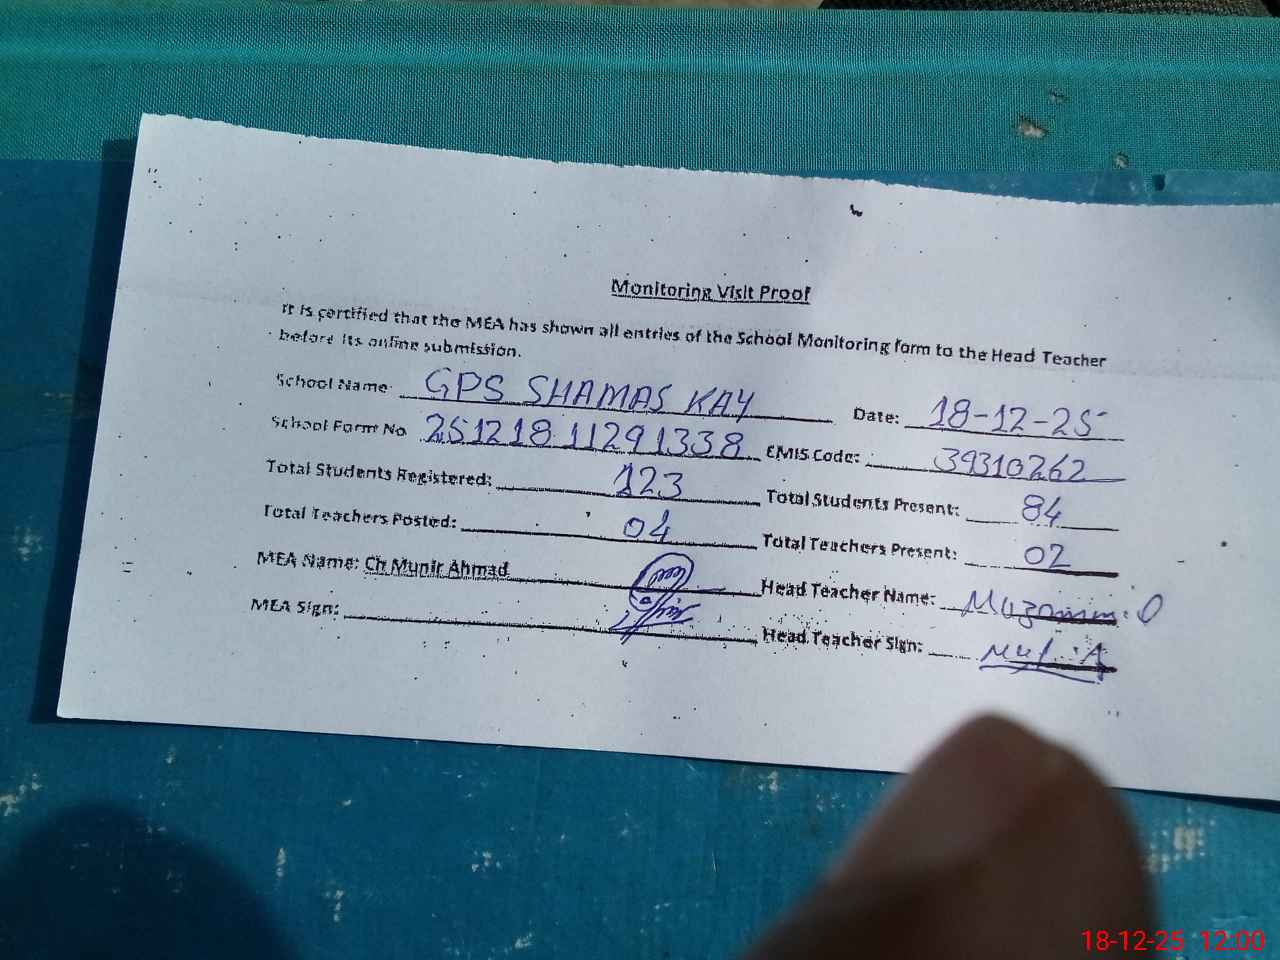 Monitoring Visit Proof
It is certified that the MEA has shown all entries of the School Monitoring form to the Head Teacher
before its online submission.
School Name: GPS SHAMAS KAY Date: 18-12-25
School Form No 25121811291338 EMIS Code: 39310262
Total Students Registered: 123 Total Students Present: 84
Total Teachers Posted: 04 Total Teachers Present: 02
MEA Name: Ch Munir Ahmad Head Teacher Name:
MEA Sign: Head Teacher Sign:
18-12-25 12:00